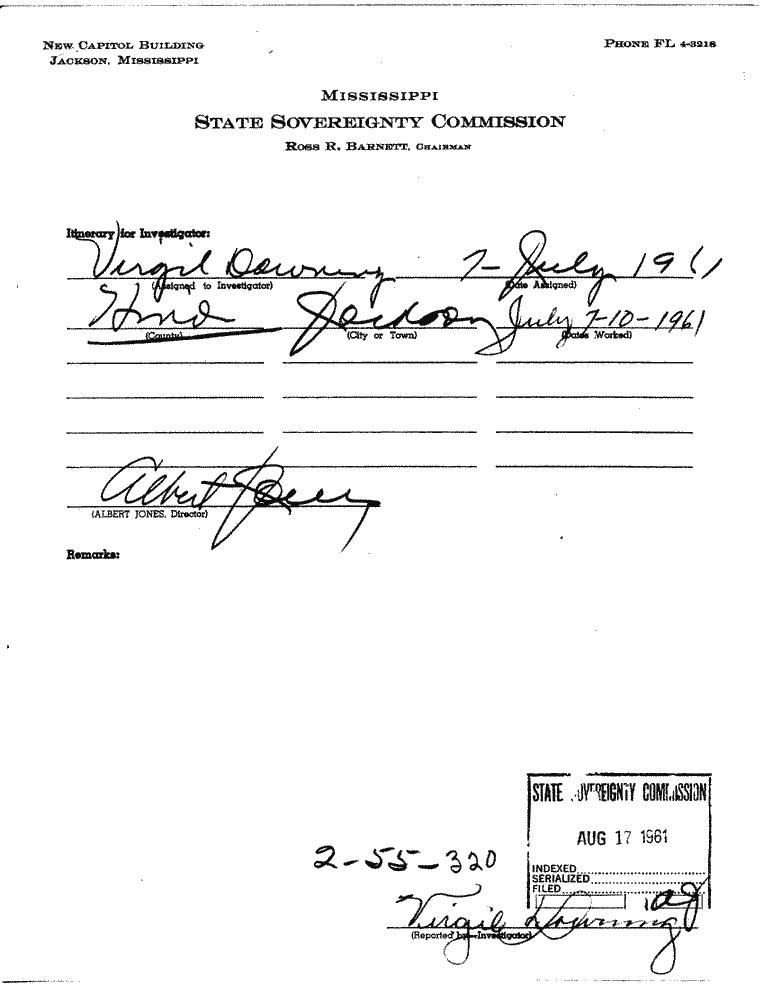 NEW CAPITOL BUILDING
JACKSON, MISSISSIPPI
PHONE FL 4-3218
MISSISSIPPI
STATE SOVEREIGNTY COMMISSION
ROSS R. BARNETT, CHAIRMAN
Itinerary for Investigator:
Virgil Downing 7-July 1961
(Assigned to Investigator) (Date Assigned)
Hinds Jackson July 7-10-1961
(County) (City or Town) (Dates Worked)
Albert Jones
(ALBERT JONES, Director)
Remarks:
STATE SOVEREIGNTY COMMISSION
AUG 17 1961
2-55-320
INDEXED
SERIALIZED
FILED
aj
Virgil Downing
(Reported by Investigator)